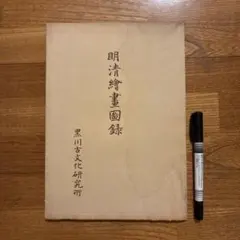 明清繪畫圖錄
黒川古文化研究所